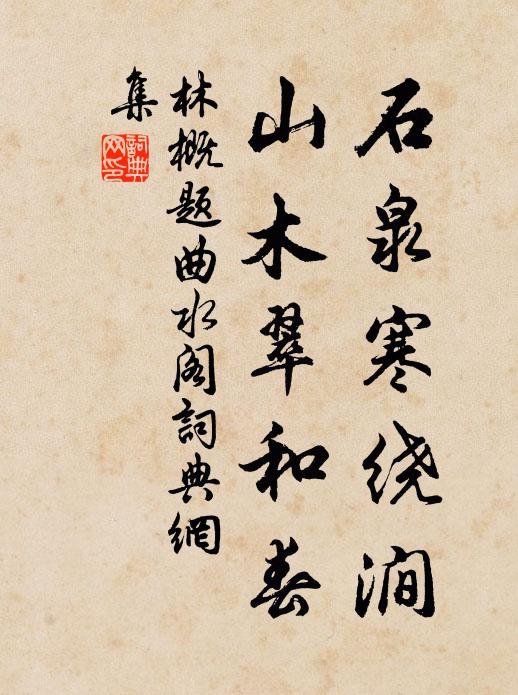 石泉寒绕涧
山木翠和春
林概题曲水阁詞典網
集
詞典
网印